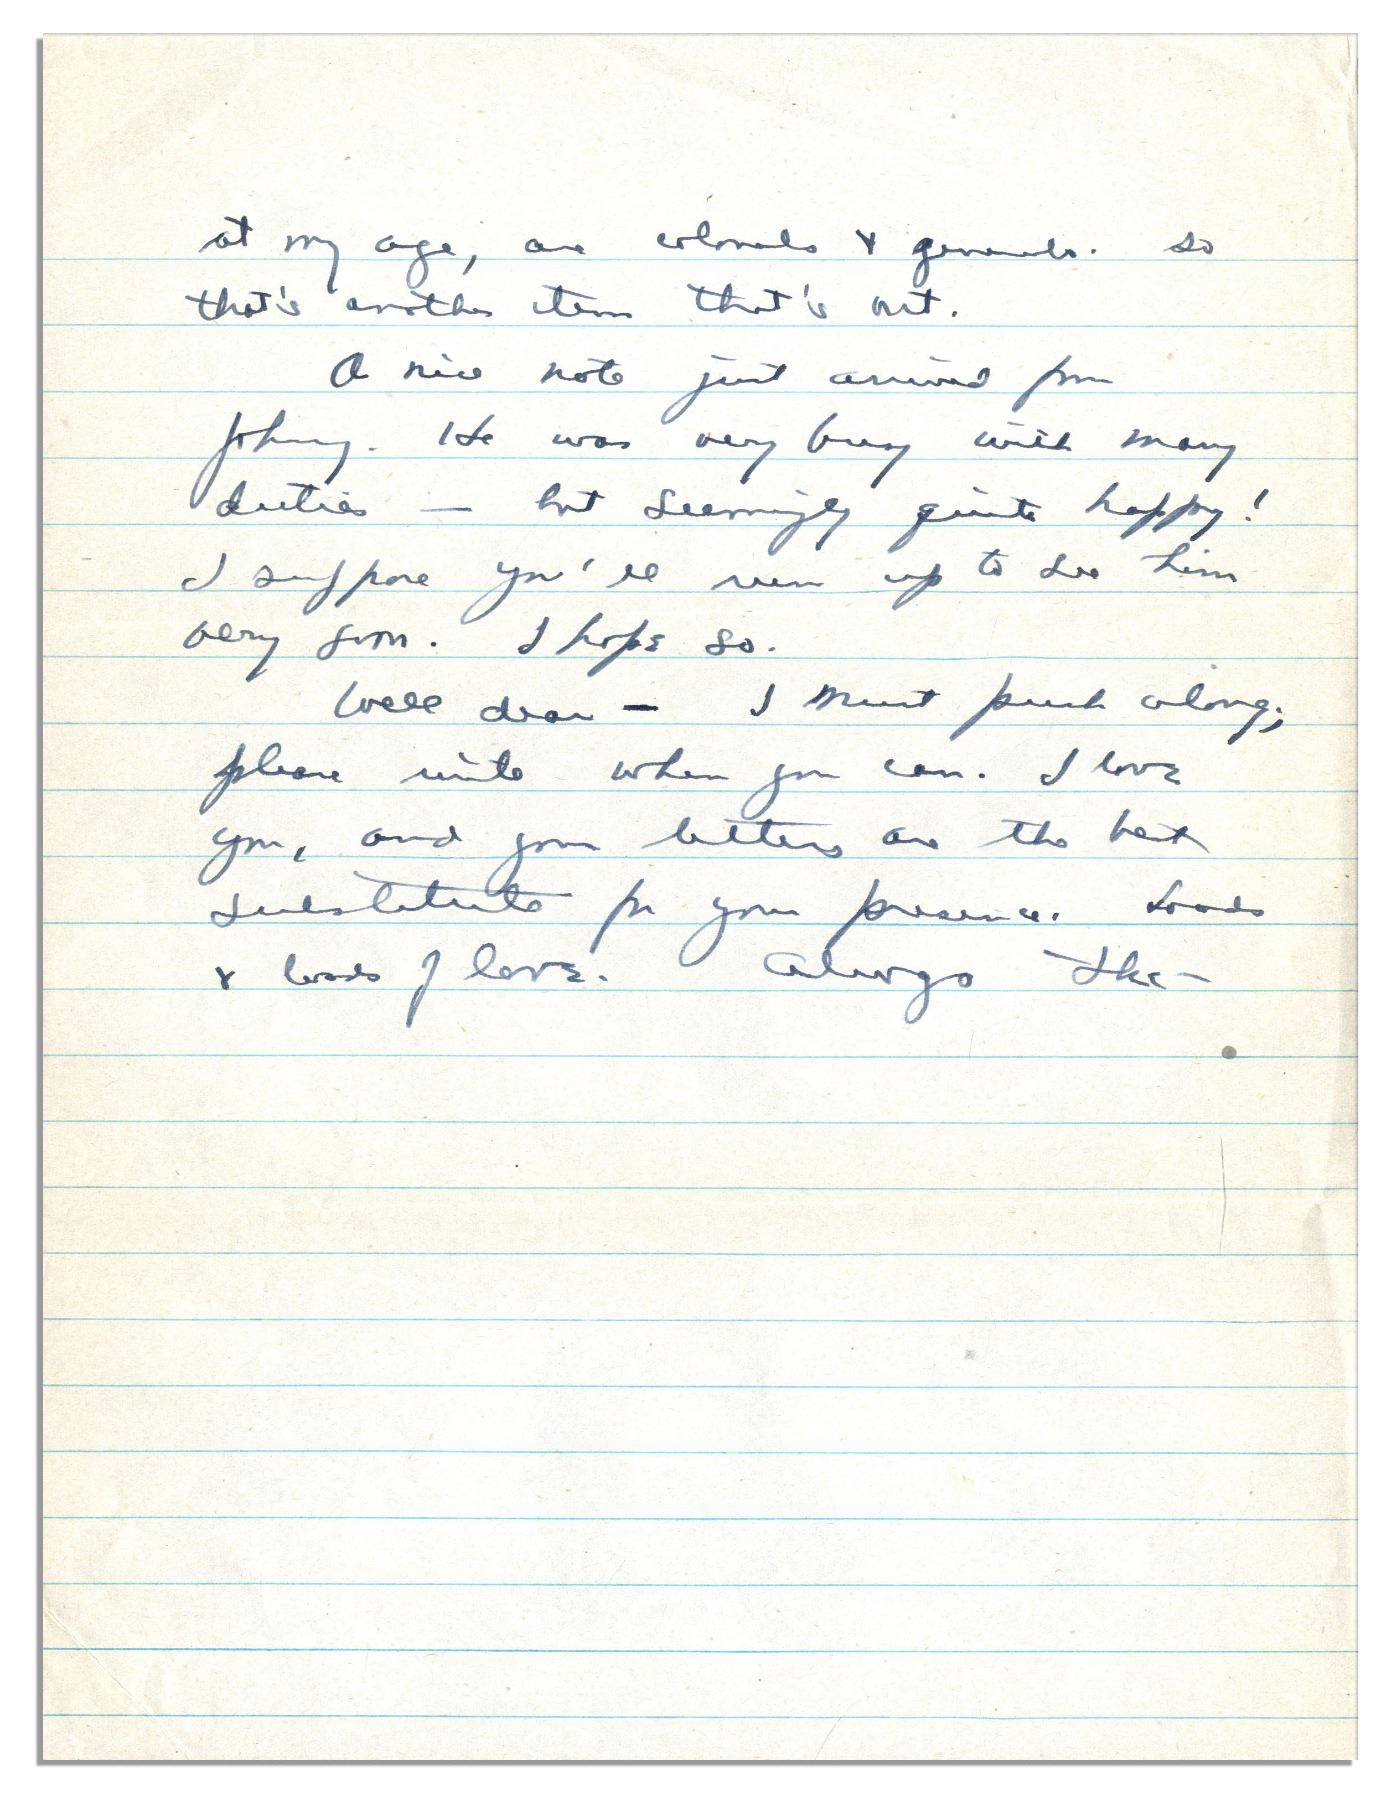 at my age, are colonels & generals. So
that's another item that's out.
A nice note just arrived from
Johnny. He was very busy with many
duties — but seemingly quite happy!
I suppose you'll run up to see him
very soon. I hope so.
Well dear — I must push along;
please write when you can. I love
you, and your letters are the best
substitute for your presence. Loads
& loads of love. Always Ike —